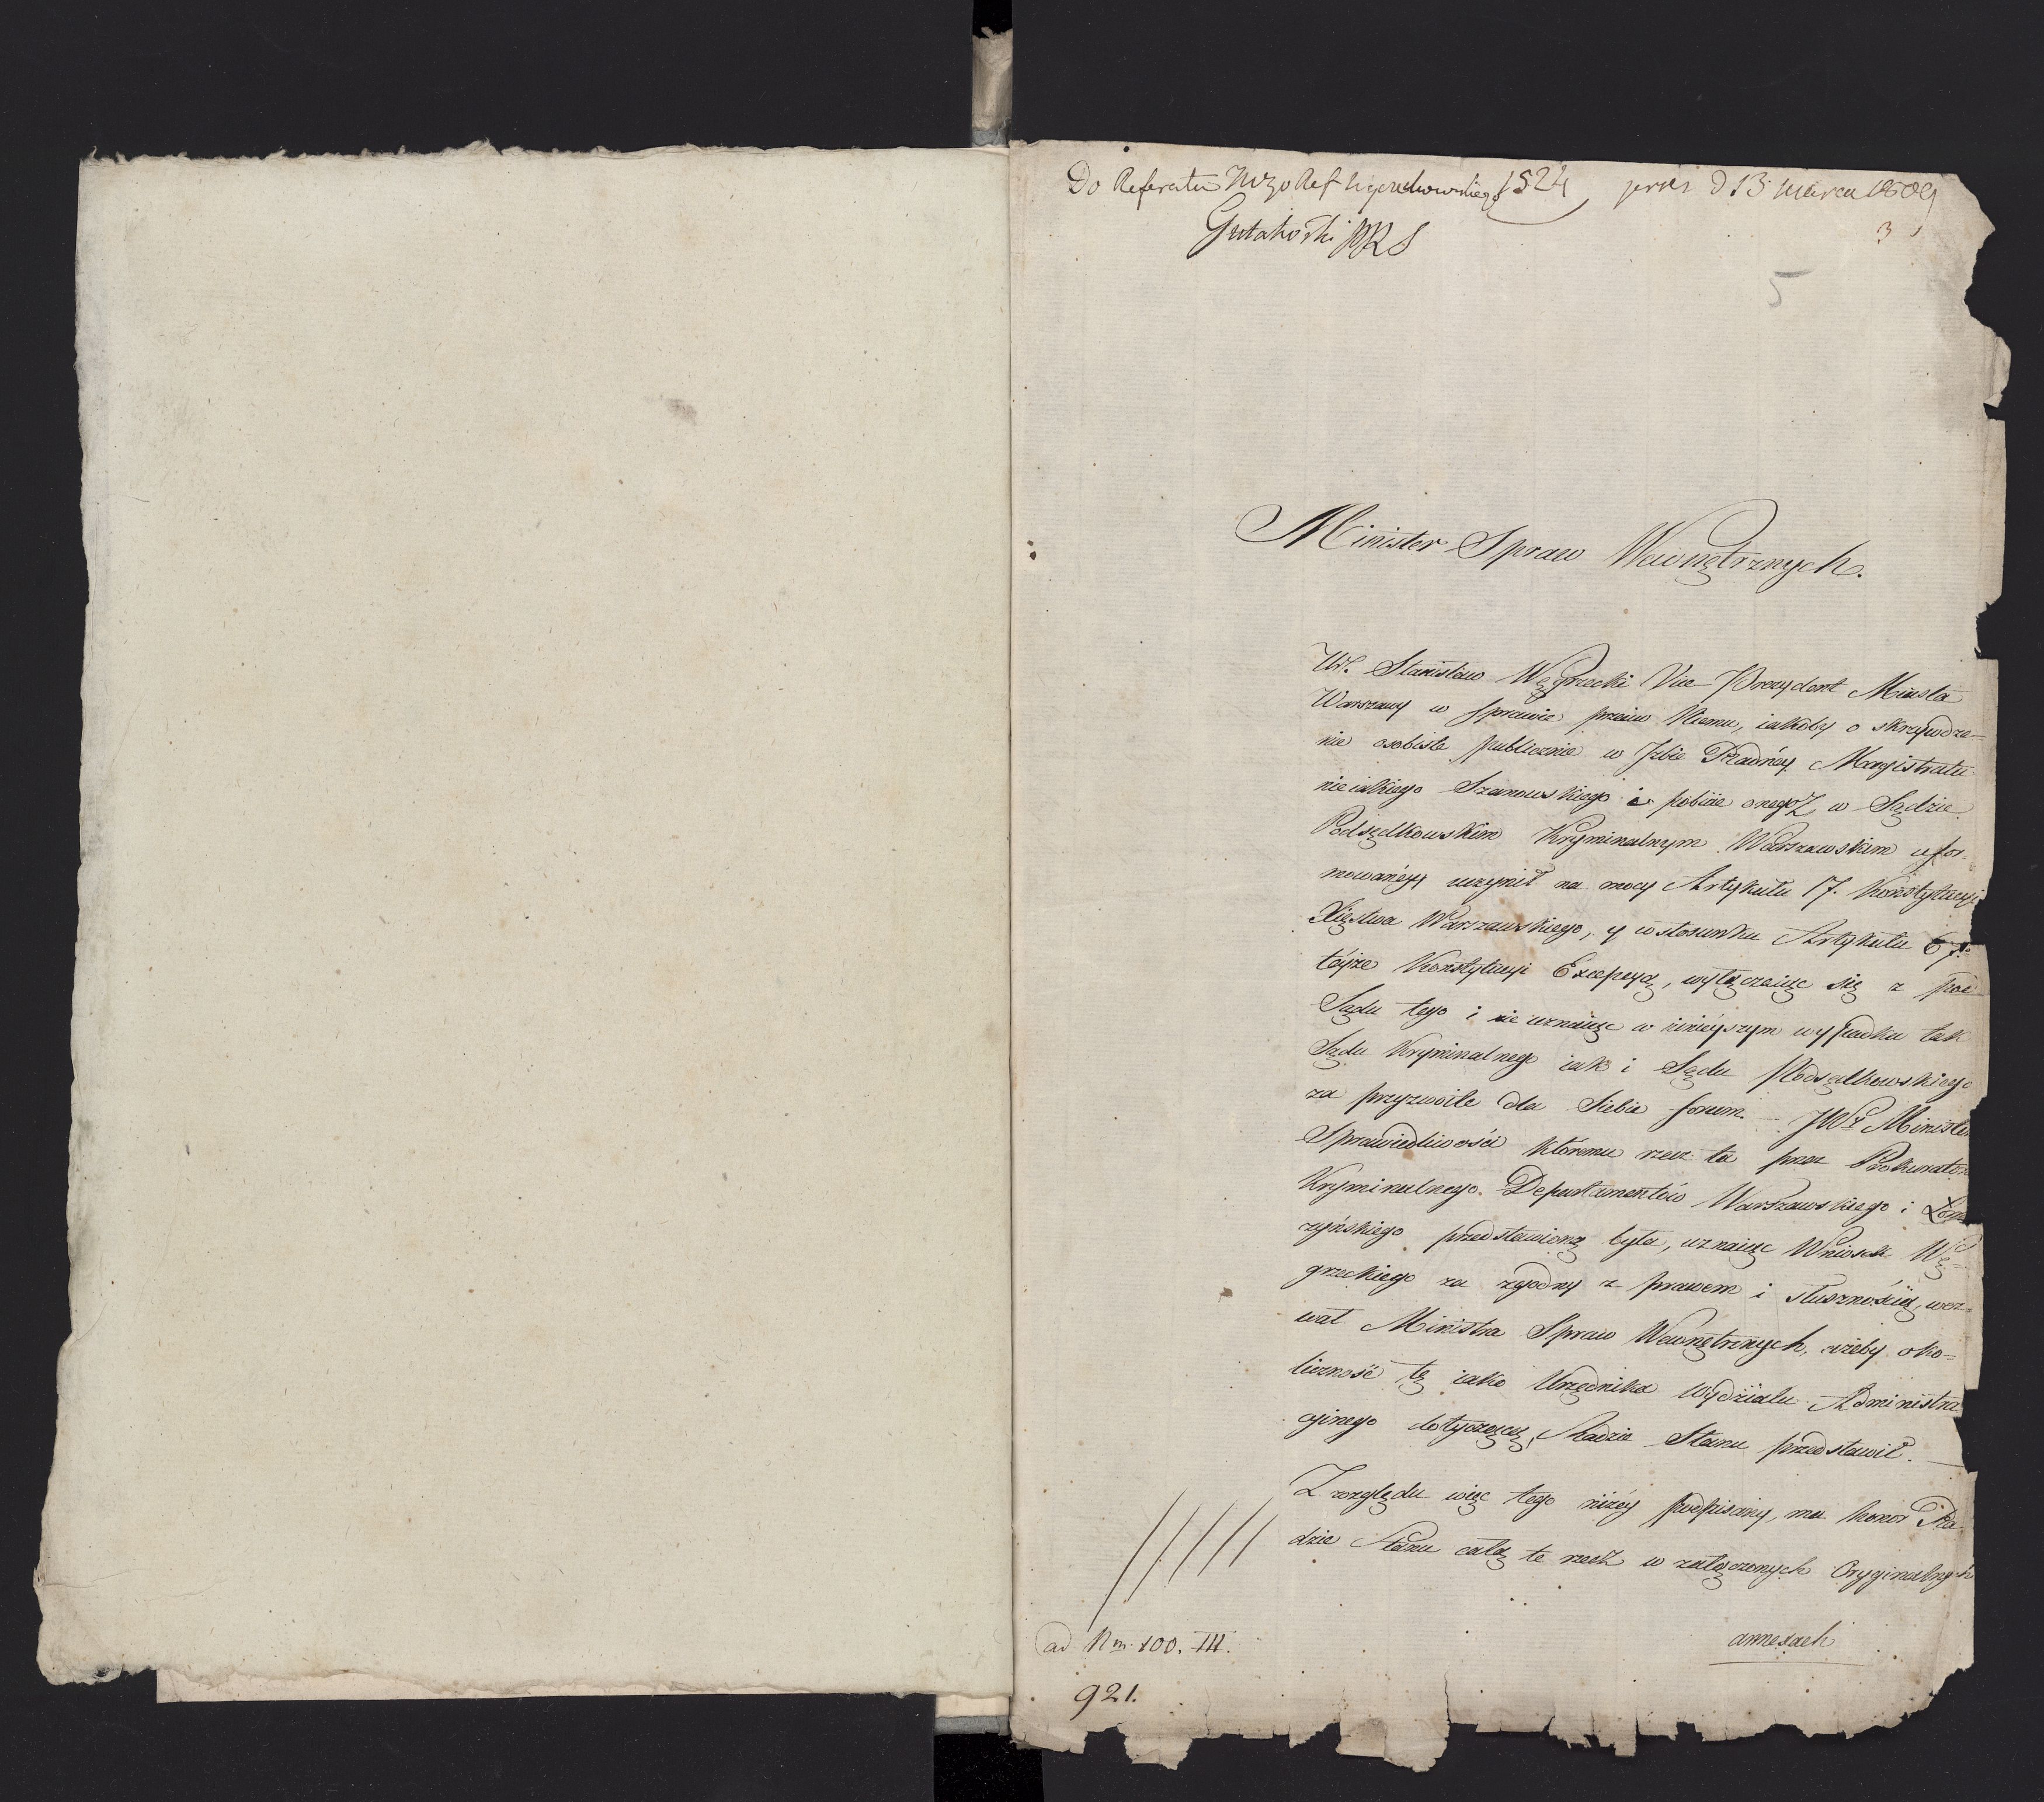 Do Referatu Wgo Ref Węgrzechowskiego 1524 d 13 marca 1809
Gutakoski PRS
3
5
Minister Spraw Wewnętrznych.
Ur. Stanisław Węgrzecki Vice-Prezydent Miasta
Warszawy w sprawie przeciw Niemu, iakoby o skrzywdze-
nie osobiste publicznie w Izbie Radnéy Magistratu
nieiakiego Szanowskiego i pobicie onegoż w Sądzie
Podsędkowskim Kryminalnym Warszawskim ufor-
mowanéy uczynił na mocy Artykułu 17. Konstytucyi
Xięstwa Warszawskiego, y w stosunku Artykułu 67.
téyże Konstytucyi Excepcyą, wyłączaiąc się z pod
Sądu tego i nie uznaiąc w ninieyszym wypadku tak
Sądu Kryminalnego iak i Sądu Podsędkowskiego
za przyzwoite dla Siebie forum. – JWy Minister
Sprawiedliwości któremu rzecz ta przez Prokurator
Kryminalnego Departamentów Warszawskiego i Łom
żyńskiego przedstawioną była, uznaiąc Wniosek Wę-
grzeckiego za zgodny z prawem i słusznością, wez-
wał Ministra Spraw Wewnętrznych, ażeby oko-
liczność tę iako Urzędnika Wydziału Administra
cyinego dotyczącą, Radzie Stanu przedstawił. —
Z względu więc tego niżéy podpisany, ma honor Ra-
dzie Stanu całą te rzecz w załączonych Oryginalnych
annexach
ad Nm. 100. III.
921.